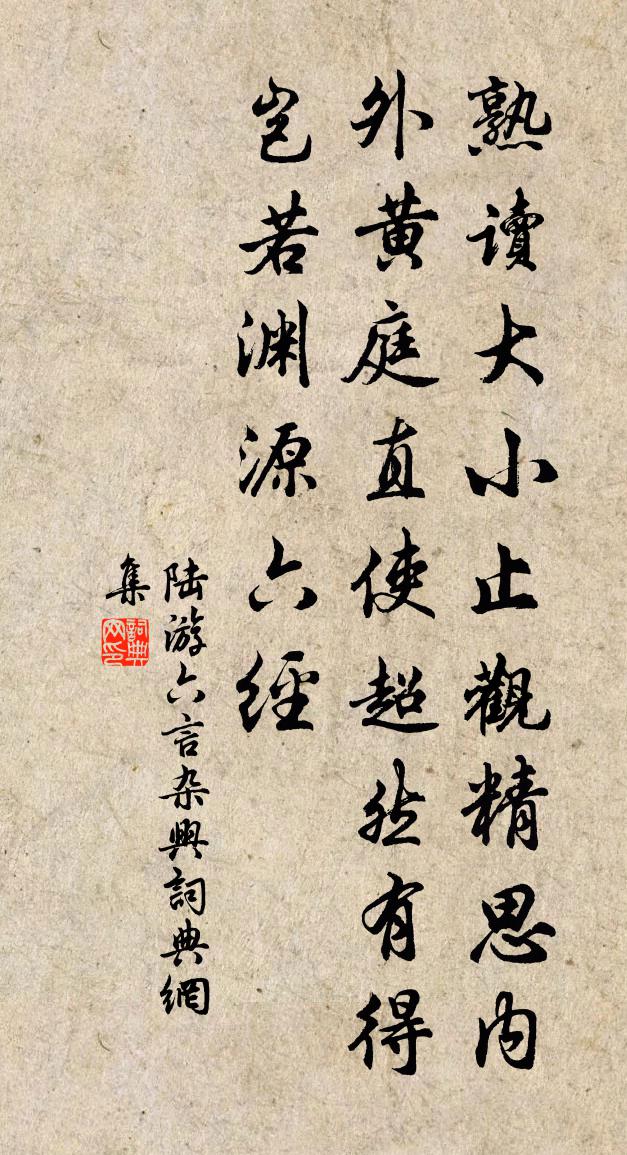 熟讀大小止觀精思内
外黄庭直使超然有得
岂若渊源六經
陆游六言杂興詞典網
集
詞典
网印